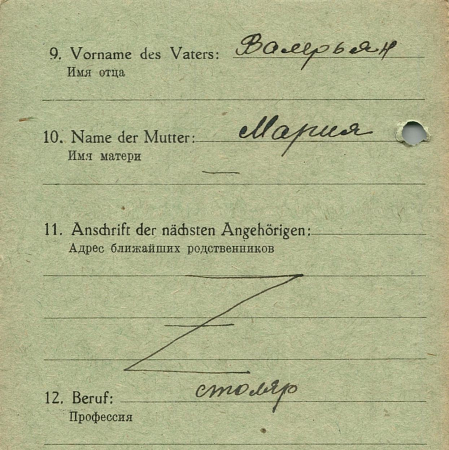 9. Vorname des Vaters: Валерьян
Имя отца
10. Name der Mutter: Мария
Имя матери
11. Anschrift der nächsten Angehörigen:
Адрес ближайших родственников
12. Beruf: столяр
Профессия